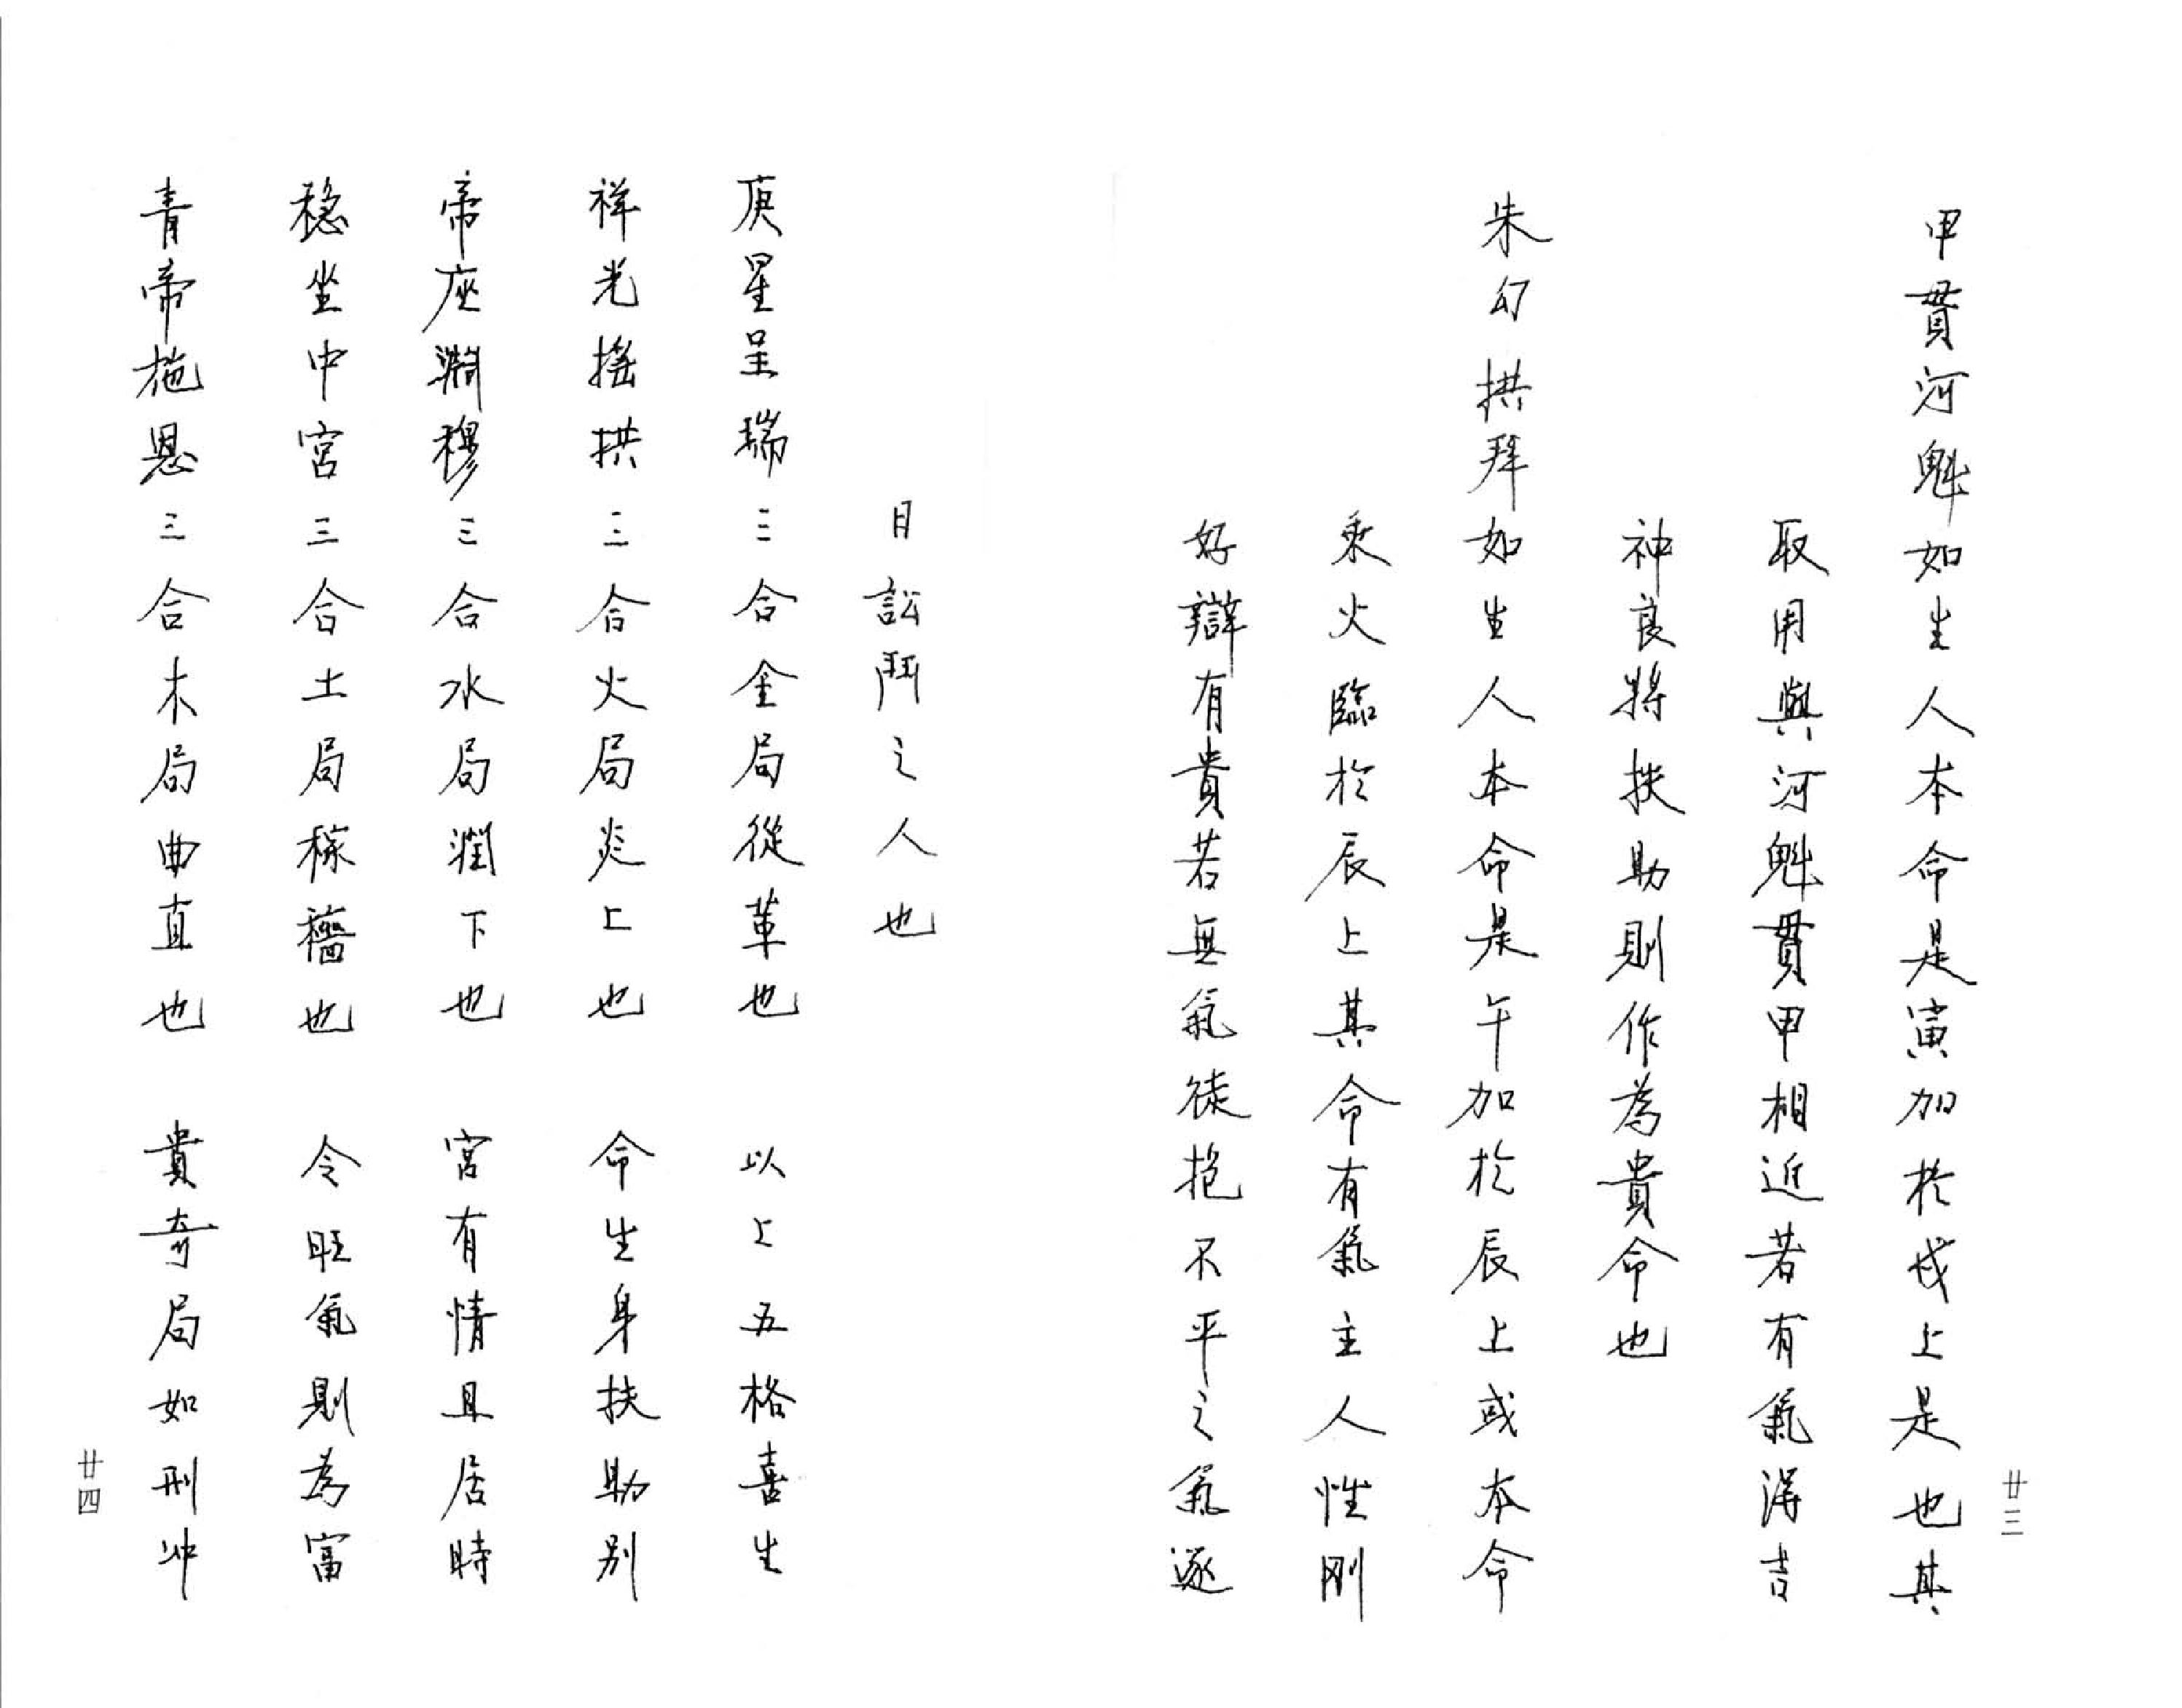 廿三
甲貫河魁如生人本命是寅加於戌上是也其
取用與河魁貫甲相近若有氣得吉
神良將扶助則作為貴命也
朱幻拱拜如生人本命是午加於辰上或本命
乘火臨於辰上其命有氣主人性剛
好辯有貴若無氣徒抱不平之氣逐
日訟鬥之人也
庚星呈瑞三合金局從革也 以上五格喜生
祥光搖拱三合火局炎上也 命生身扶助別
帝座淵穆三合水局潤下也 宮有情且居時
穩坐中宮三合土局稼穡也 令旺氣則為富
青帝施恩三合木局曲直也 貴奇局如刑冲
廿四